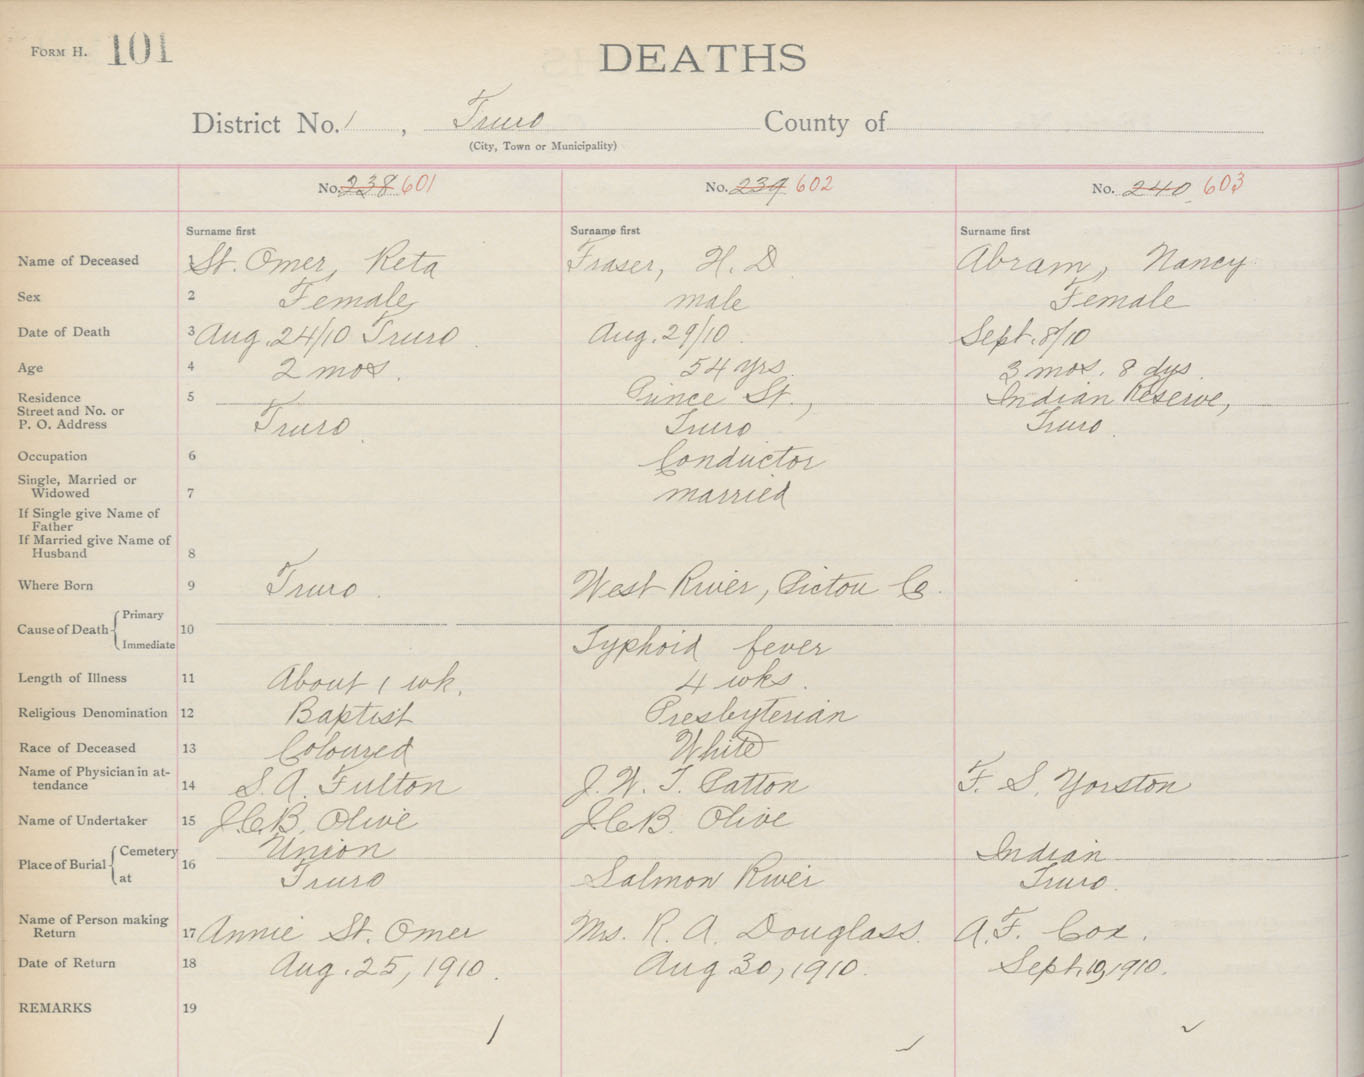 FORM H. 101
DEATHS
District No. 1, Truro County of
(City, Town or Municipality)
No. 238 601 No. 239 602 No. 240 603
Surname first Surname first Surname first
Name of Deceased 1 St. Omer, Reta Fraser, H. D Abram, Nancy
Sex 2 Female male Female
Date of Death 3 Aug. 24/10 Truro Aug. 29/10 Sept. 8/10
Age 4 2 mos. 54 yrs 3 mos. 8 dys
Residence 5 Prince St., Indian Reserve,
Street and No. or
P. O. Address Truro Truro Truro
Occupation 6 Conductor
Single, Married or
Widowed 7 married
If Single give Name of
Father
If Married give Name of
Husband 8
Where Born 9 Truro. West River, Pictou Co.
Primary
Cause of Death 10
Immediate Typhoid fever
Length of Illness 11 About 1 wk. 4 wks.
Religious Denomination 12 Baptist Presbyterian
Race of Deceased 13 Coloured White
Name of Physician in at-
tendance 14 S. A. Fulton J. W. T. Patton F. S. Yorston
Name of Undertaker 15 J.C.B. Olive J.C.B. Olive
Cemetery Union Indian
Place of Burial 16
at Truro Salmon River Truro
Name of Person making
Return 17 Annie St. Omer Mrs. R. A. Douglass A. F. Cox.
Date of Return 18 Aug. 25, 1910. Aug 30, 1910. Sept. 10, 1910.
REMARKS 19